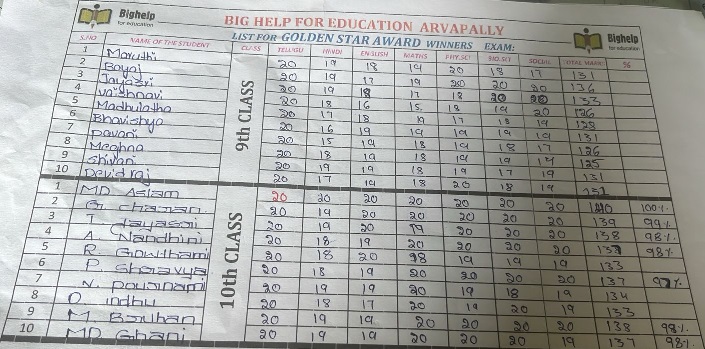 Bighelp
for education
BIG HELP FOR EDUCATION ARVAPALLY
Bighelp
for education
LIST FOR GOLDEN STAR AWARD WINNERS EXAM:
S.NO NAME OF THE STUDENT CLASS TELUGU HINDI ENGLISH MATHS PHY.SCI BIO.SCI SOCIAL TOTAL MARKS %
9th CLASS
1 Maruthi 20 19 18 19 20 18 17 131
2 20 19 19 20 20 136
3 Jayasri 20 19 18 17 18 20 20 133
4 Vaishnavi 20 18 16 15 18 19 20 126
5 Madhulatha 20 17 18 19 17 18 19 128
6 Bhavishya 20 16 19 19 19 19 19 131
7 Pavani 20 15 19 18 19 18 17 126
8 Meghna 20 18 19 18 19 19 125
9 Shivani 20 19 19 18 19 17 19 131
10 Devid raj 20 17 19 18 20 18 19
10th CLASS
1 MD Aslam 20 20 20 20 20 20 20 140 100%
2 G. charan 20 19 20 20 20 20 20 139 99%
3 T. 20 19 20 19 20 20 20 138 98%
4 A. Nandhini 20 18 19 20 20 20 20 137 98%
5 R. Gowthami 20 18 20 18 19 19 19 133
6 P. Sharavya 20 18 19 20 20 20 20 137 97%
7 N. 20 19 19 20 19 18 19 134
8 D. indhu 20 18 17 20 19 20 19 133
9 M. 20 19 19 20 20 20 20 138 98%
10 MD Ghani 20 19 19 20 20 20 19 137 98%